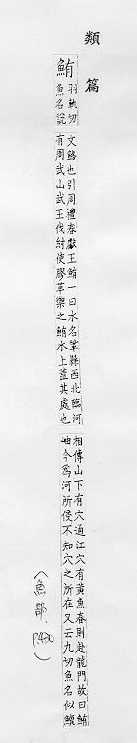 類篇
鮪
羽軌切
魚名說
文鮥也引周禮春獻王鮪一曰水名鞏縣西北臨河
有周武山武王伐紂使膠革禦之鮪水上蓋其處也
相傳山下有穴通江穴有黃魚春則赴龍門故曰鮪
岫今為河所侵不知穴之所在又云九切魚名似鱣
(魚部,